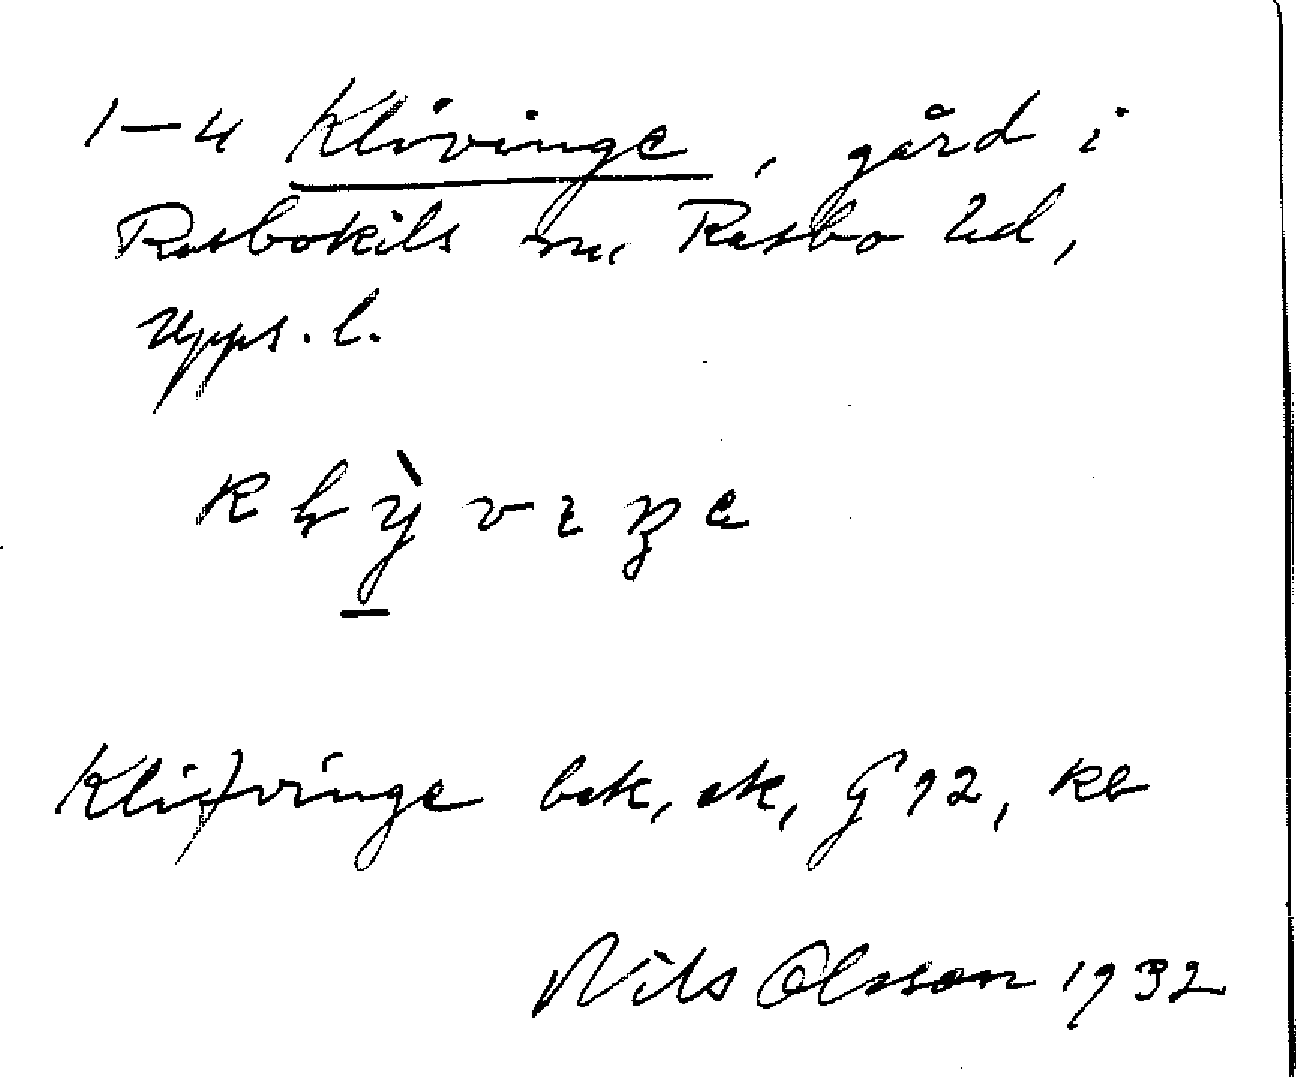 1–4 Klivinge, gård i
Rasbokils sn, Rasbo hd,
Upps. l.
Klifvinge bek, ek, G 92, kb
Nils Olsson 1932